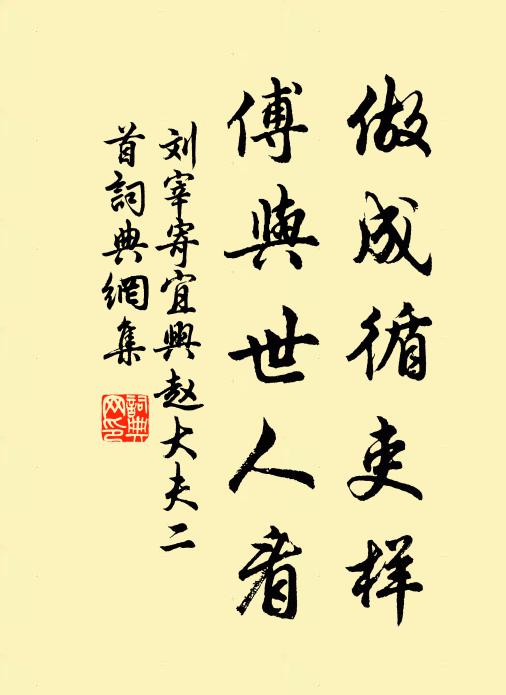 做成循吏样
傅與世人看
刘宰寄宜興赵大夫二
首詞典網集
詞典網印